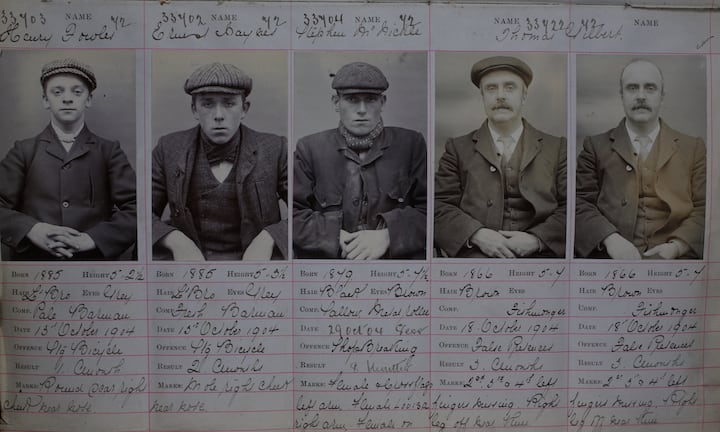 33703 NAME 72 33702 NAME 72 33704 NAME 72 NAME 33722 72 NAME
Henry Fowler Ernest Stephen Thomas Gilbert
BORN 1885 HEIGHT 5-2½ BORN 1885 HEIGHT 5-3½ BORN 1870 HEIGHT 5-4½ BORN 1866 HEIGHT 5-4 BORN 1866 HEIGHT 5-4
HAIR Lt Bro EYES Grey HAIR Lt Bro EYES Grey HAIR Black EYES Brown HAIR Brown EYES HAIR Brown EYES
COMP. Pale Barman COMP. Fresh Barman COMP. Sallow COMP. Fishmonger COMP. Fishmonger
DATE 15th October 1904 DATE 15th October 1904 DATE 29 Oct 04 DATE 18 October 1904 DATE 18 October 1904
OFFENCE Stg Bicycle OFFENCE Stg Bicycle OFFENCE Shop Breaking OFFENCE False Pretences OFFENCE False Pretences
RESULT 1 Month RESULT 2 Months RESULT RESULT 3 Months RESULT 3 Months
MARKS Round scar right MARKS Mole right cheek MARKS MARKS 2nd 3rd & 4th left MARKS 2nd 3 & 4th left
cheek near nose near nose left arm fingers missing. Right fingers missing. Right
right arm leg off near knee leg off near knee